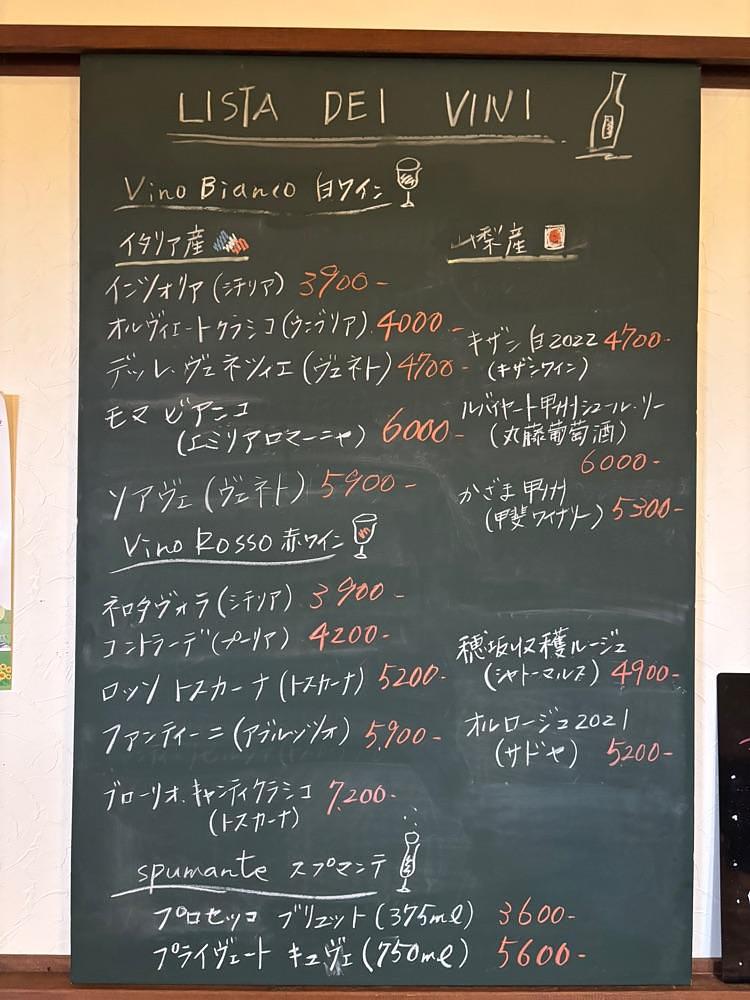 LISTA DEI VINI
Vino Bianco 白ワイン
イタリア産
インツォリア(シチリア) 3900-
オルヴィエートクラシコ(ウンブリア) 4000-
デッレ・ヴェネツィエ(ヴェネト) 4700-
モマ ビアンコ
(エミリアロマーニャ) 6000-
ソアヴェ(ヴェネト) 5900-
山梨産
キザン白2022 4700-
(キザンワイン)
ルバイヤート甲州シュール・リー
(丸藤葡萄酒)
6000-
かざま甲州
(甲斐ワイナリー) 5300-
Vino Rosso 赤ワイン
ネロダヴォラ(シチリア) 3900-
コントラーデ(プーリア) 4200-
ロッソ トスカーナ(トスカーナ) 5200-
ファンティーニ(アブルッツォ) 5,900-
ブローリオ.キャンティクラシコ 7,200-
(トスカーナ)
穂坂収穫ルージュ
(シャトーマルス) 4900-
オルロージュ2021
(サドヤ) 5200-
spumante スプマンテ
プロセッコ ブリュット(375ml) 3600-
プライヴェート キュヴェ(750ml) 5600-